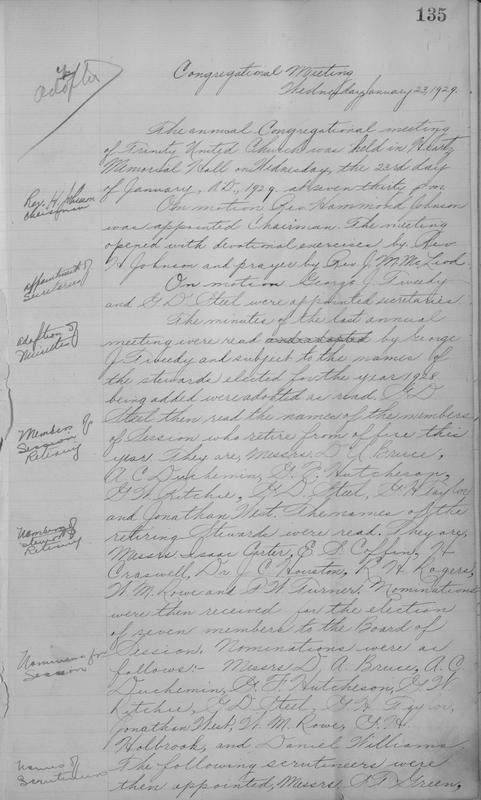 135
Congregational Meeting
Wednesday January 23, 1929.
The annual Congregational meeting
of Trinity United Church was held in
Memorial Hall on Wednesday, the 23rd day
of January, A.D., 1929 at seven thirty p.m.
Rev. H. Johnson
Chairman
On motion Rev. Hammond Johnson
was appointed Chairman. The meeting
opened with devotional exercises by Rev
H Johnson and prayer by Rev. J. M. McLeod.
appointment of
Secretaries
On motion George J. Tweedy
and G. D. Steel were appointed secretaries
Adoption of
Minutes
The minutes of the last annual
meeting were read and adopted by George
J. Tweedy and subject to the names of
the stewards elected for the year 1928
being added were adopted as read. G. D.
Steel then read the names of the members
Members of
Session
Retiring
of Session who retire from office this
year. They are, Messrs D. A. Bruce,
A. C. Duchemin, G. F. Hutcheson,
G. W. Ritchie, G. D. Steel, G. H. Taylor
and Jonathan West. The names of the
Retiring
retiring Stewards were read. They are,
Messrs Isaac Carter, E. L. Coffin, H
Craswell, Dr. J. C. Houston, R. H. Rogers,
W. M. Rowe and P. W. Turner. Nominations
were then received for the election
of seven members to the Board of
Nominees for
Session
Session. Nominations were as
follows:- Messrs D. A. Bruce, A. C.
Duchemin, G. F. Hutcheson, G. W.
Ritchie, G. D. Steel, G. H. Taylor,
Jonathan West, W. M. Rowe, G. H.
Holbrook, and Daniel Williams.
Names of
Scrutineers
The following scrutineers were
then appointed, Messrs Green,